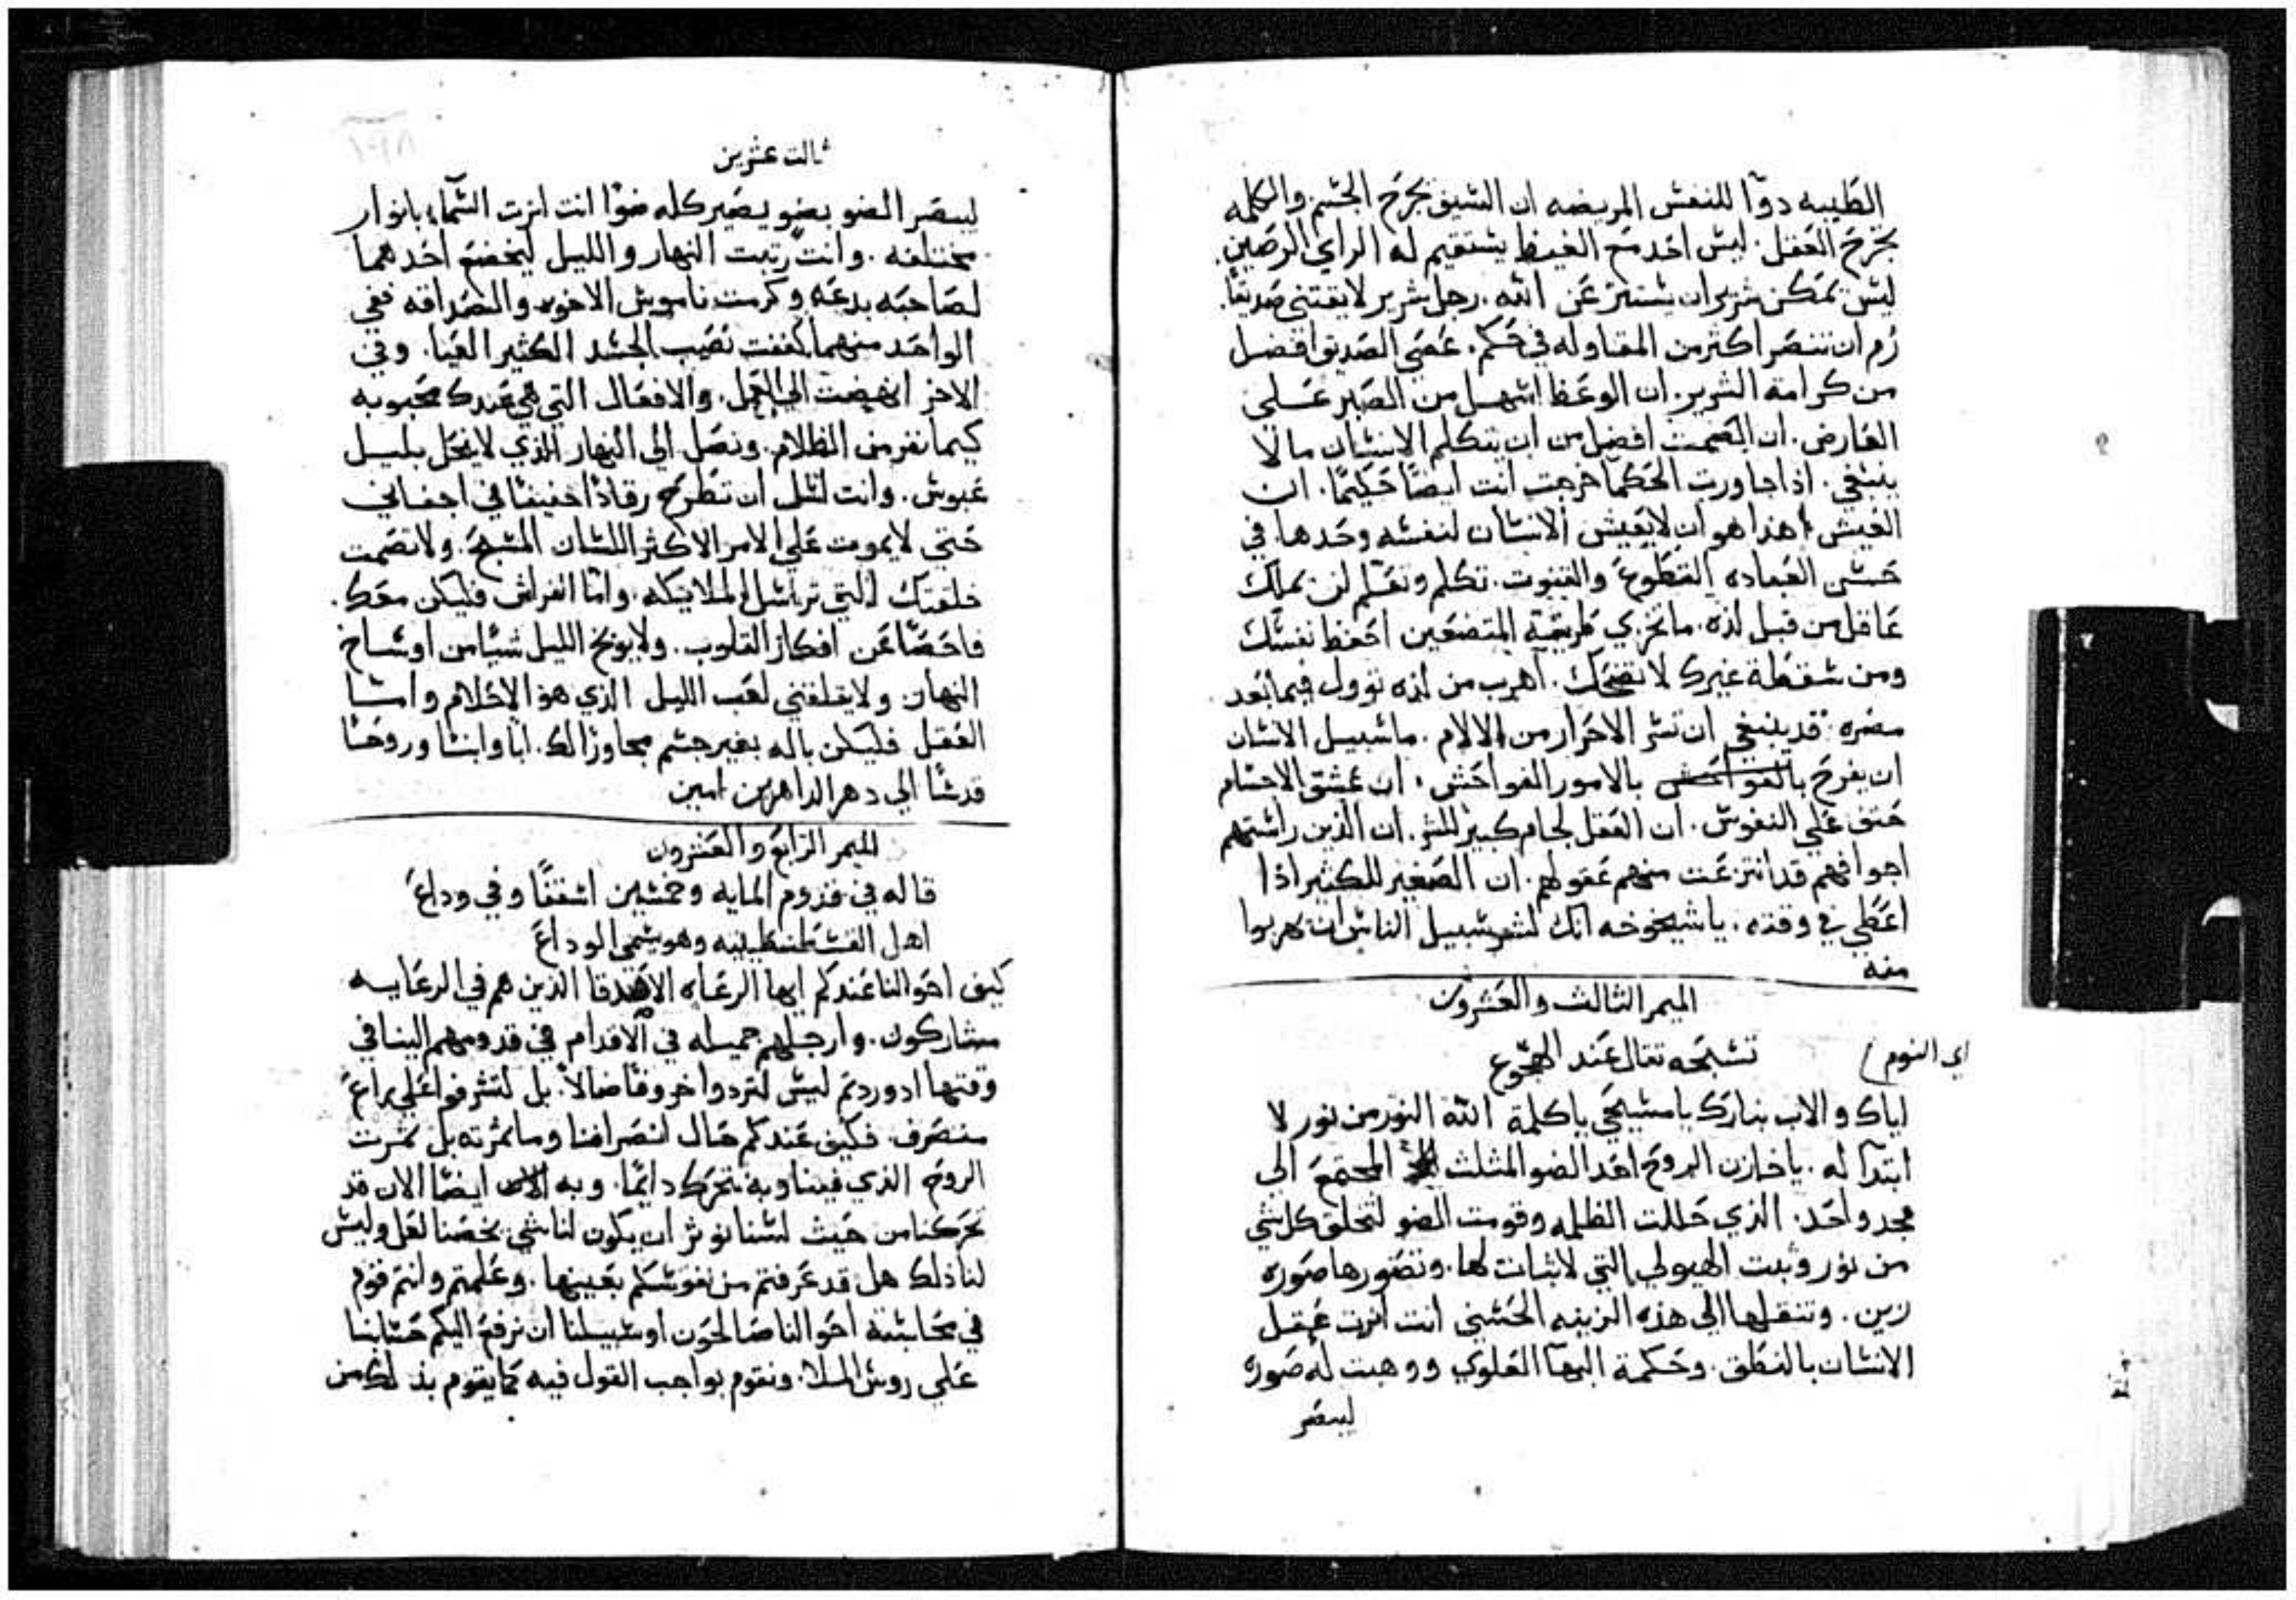 الطيبه دوآا للنفس المريضه ان السيف يجرح الجسم والكلمه
تجرح العقل. ليس احد مع الغيظ يستقيم له الراي الرصين.
ليس تمكن شرير ان يستتر عن الله. رجل شرير لا يقتني صديقا.
رُم ان تنتصر اكثر من المقاوله في حكم. عصى الصديق افضل
من كرامة الشرير. ان الوعظ اسهل من الصبر على
العارض. ان الصمت افضل من ان يتكلم الانسان ما لا
ينبغي. اذا جاورت الحكما خرجت انت ايضًا حكيمًا. ان
العيش هذا هو ان لا يعيش الانسان لنفسه وحدها في
حسن العباده التطوع والقنوت. تكلم وتعلم لن يملك
عاقل من قبل لذه. ما تجزي طريقة المتضعين احفظ نفسك
ومن سقطة غيرك لا تضحك. اهرب من لذه توول فيما بعد
مضره. قد ينبغي ان تسر الاحرار من الالام. ما سبيل الانسان
ان يفرح بالفواحش بالامور الفواحش. ان عشق الاجسام
خنق علي النفوس. ان العقل لجام كبير للشر. ان الذين راستهم
اجوافهم قد انتزعت منهم عقولهم. ان الصغير للكثير اذا
اعطي في وقته. يا شيخوخه انك لشر سبيل الناس ان يهربوا
منه
الميمر الثالث والعشرون
تسبحه تقال عند الهجوع
اي النوم)
اياك والاب نبارك يا مسيحي يا كلمة الله النور من نور لا
ابتدآ له. يا خازن الروح احد الضو المثلث المجتمع الي
مجد واحد. الذي حللت الظلمه وقومت الضو لتخلق كل شي
من نور وثبت الهيولي التي لا ثبات لها. وتصورها صوره
زين. وتنقلها الي هذه الزينه الحسني انت انرت عقل
الانسان بالنطق. وحكمة البهآ العلوي ووهبت له صوره
ليبصر
ثالث عشرين
ليبصر الضو بضو يصير كله ضوًا انت انرت السماء بانوار
مختلفه. وانت رتبت النهار والليل ليخضع احدهما
لصاحبه بدعه وكرمت ناموس الاخوه والصداقه ففي
الواحد منهما كففت نصيب الجسد الكثير العيا. وفي
الاخر انهضت الي العمل. والافعال التي هي عندك محبوبه
كيما نفر من الظلام. ونصل الي النهار الذي لا ينحل بليل
عبوس. وانت لتل ان تطرح رقادًا خفيفا في اجفاني
حتي لا يموت علي الامر الاكثر اللسان المسبح. ولا تصمت
خلقتك التي تراسل الملائيكه. واما الفراش فليكن معك.
فاحصًا عن افكار القلوب. ولا يوبخ الليل شيًا من اوساخ
النهار. ولا يقلقني لعب الليل الذي هو الاحلام واما
العقل فليكن باله بغير جسم مجاورًا لك. ابا وابنا وروحا
قدسًا الي دهر الداهرين امين
الميمر الرابع والعشرون
قاله في قدوم المايه وخمسين اسقفًا وفي وداع
اهل القسطنطينيه وهو يسمي الوداع
كيف احوالنا عندكم ايها الرعاه الاصدقا الذين هم في الرعايه
مشاركون. وارجلهم جميله في الاقدام في قدومهم الينا في
وقتها اذ وردتم ليس لتردوا خروفا ضالًا. بل لتشرفوا علي راع
منصرف. فكيف عندكم حال انصرافنا وما ثمرته بل ثمرت
الروح الذي فينا وبه نتحرك دائمًا. وبه ايضًا الان قد
تحركنا من حيث لسنا نوثر ان يكون لنا شي يخصنا لعل وليس
لنا ذلك هل قد عرفتم من نفوسكم بعينها. وعلمتم وانتم قوم
في محاسبة احوالنا صالحون او سبيلنا ان نرفع اليكم حسابنا
علي روس الملا. ونقوم بواجب القول فيه كما يقوم بذلك من